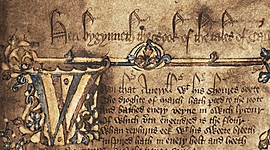 Here bygynneth the Book of the tales of Cau
Whan that Aueryll wt his shoures soote
The droghte of march hath perced to the roote
And bathed euery veyne in swich lycour
Of which vertu engendred is the flour
Whan zephirus eek wt his sweete breeth
Inspired hath in euery holt and heeth